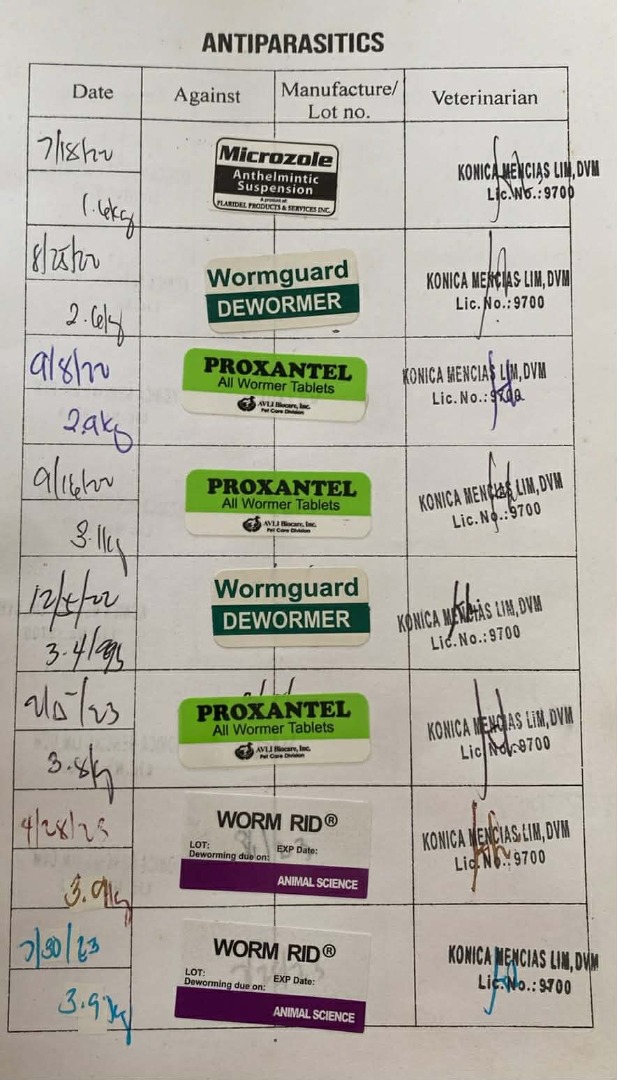 ANTIPARASITICS
Date Against Manufacture/ Lot no. Veterinarian
7/18/22
Microzole
Anthelmintic
Suspension
A product of:
PLARIDEL PRODUCTS & SERVICES INC.
KONICA MENCIAS LIM, DVM
Lic. No.: 9700
1.6kg
8/25/22
Wormguard
DEWORMER
KONICA MENCIAS LIM, DVM
Lic. No.: 9700
2.6kg
9/8/22
PROXANTEL
All Wormer Tablets
AVLI Biocare, Inc.
Pet Care Division
KONICA MENCIAS LIM, DVM
Lic. No.: 9700
2.9kg
9/16/22
PROXANTEL
All Wormer Tablets
AVLI Biocare, Inc.
Pet Care Division
KONICA MENCIAS LIM, DVM
Lic. No.: 9700
3.1kg
12/5/22
Wormguard
DEWORMER
KONICA MENCIAS LIM, DVM
Lic. No.: 9700
PROXANTEL
All Wormer Tablets
AVLI Biocare, Inc.
Pet Care Division
KONICA MENCIAS LIM, DVM
Lic. No.: 9700
3.8kg
4/28/23
WORM RID®
LOT: EXP Date:
Deworming due on:
ANIMAL SCIENCE
KONICA MENCIAS LIM, DVM
Lic. No.: 9700
3.9kg
7/30/23
WORM RID®
LOT: EXP Date:
Deworming due on:
ANIMAL SCIENCE
KONICA MENCIAS LIM, DVM
Lic. No.: 9700
3.9kg